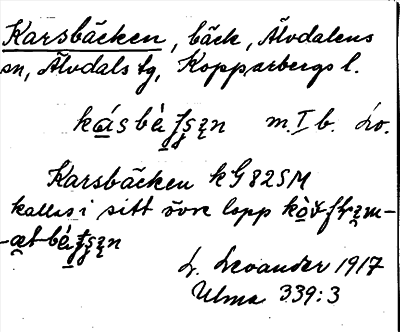 Karsbäcken, bäck, Älvdalens
sn, Älvdals tg, Kopparbergs l.
m. I b. Lo.
Karsbäcken kG 82SM
kallas i sitt övre lopp
L. Levander 1917
Ulma 339:3